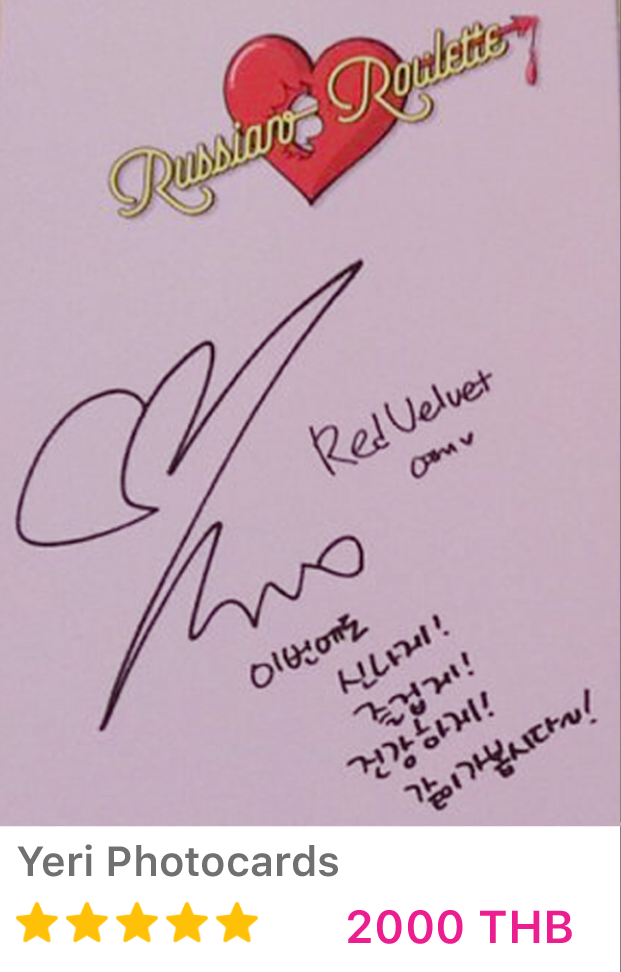 Russian Roulette
Red Velvet
이번에도
신나게!
즐겁게!
건강하게!
같이가봅시다~!
Yeri Photocards
2000 THB